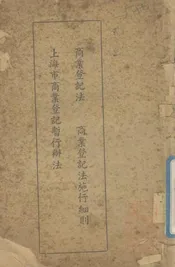 商業登記法　商業登記法施行細則
上海市商業登記暫行辦法